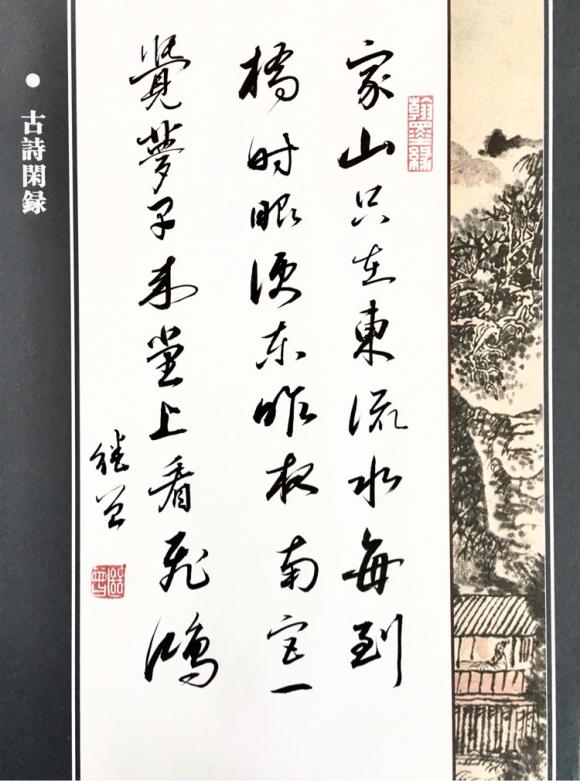 翰墨緣
家山只在東流水每到
橋时眼便东昨夜南窓一
覺夢子来堂上看飛鴻
古詩閑録